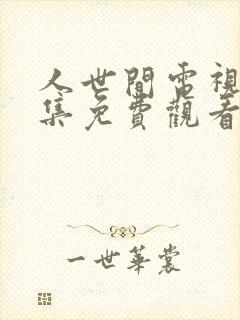 人世間電視
集免費觀看
一世華裳